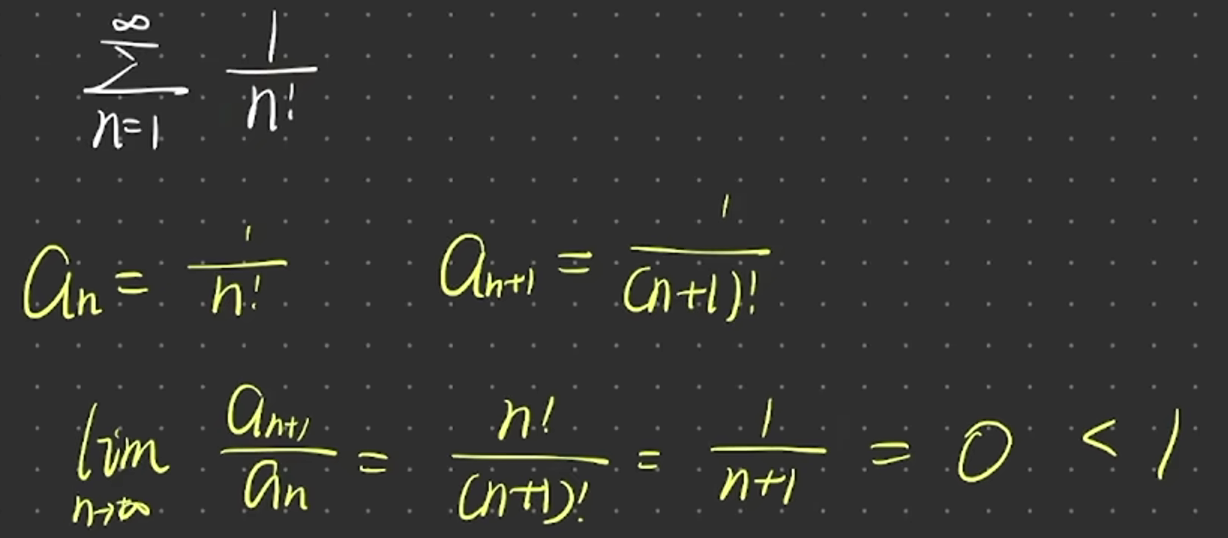 ∞
∑ 1/n!
n=1
aₙ = 1/n!   aₙ₊₁ = 1/(n+1)!
lim n→∞ aₙ₊₁/aₙ = n!/(n+1)! = 1/(n+1) = 0 < 1